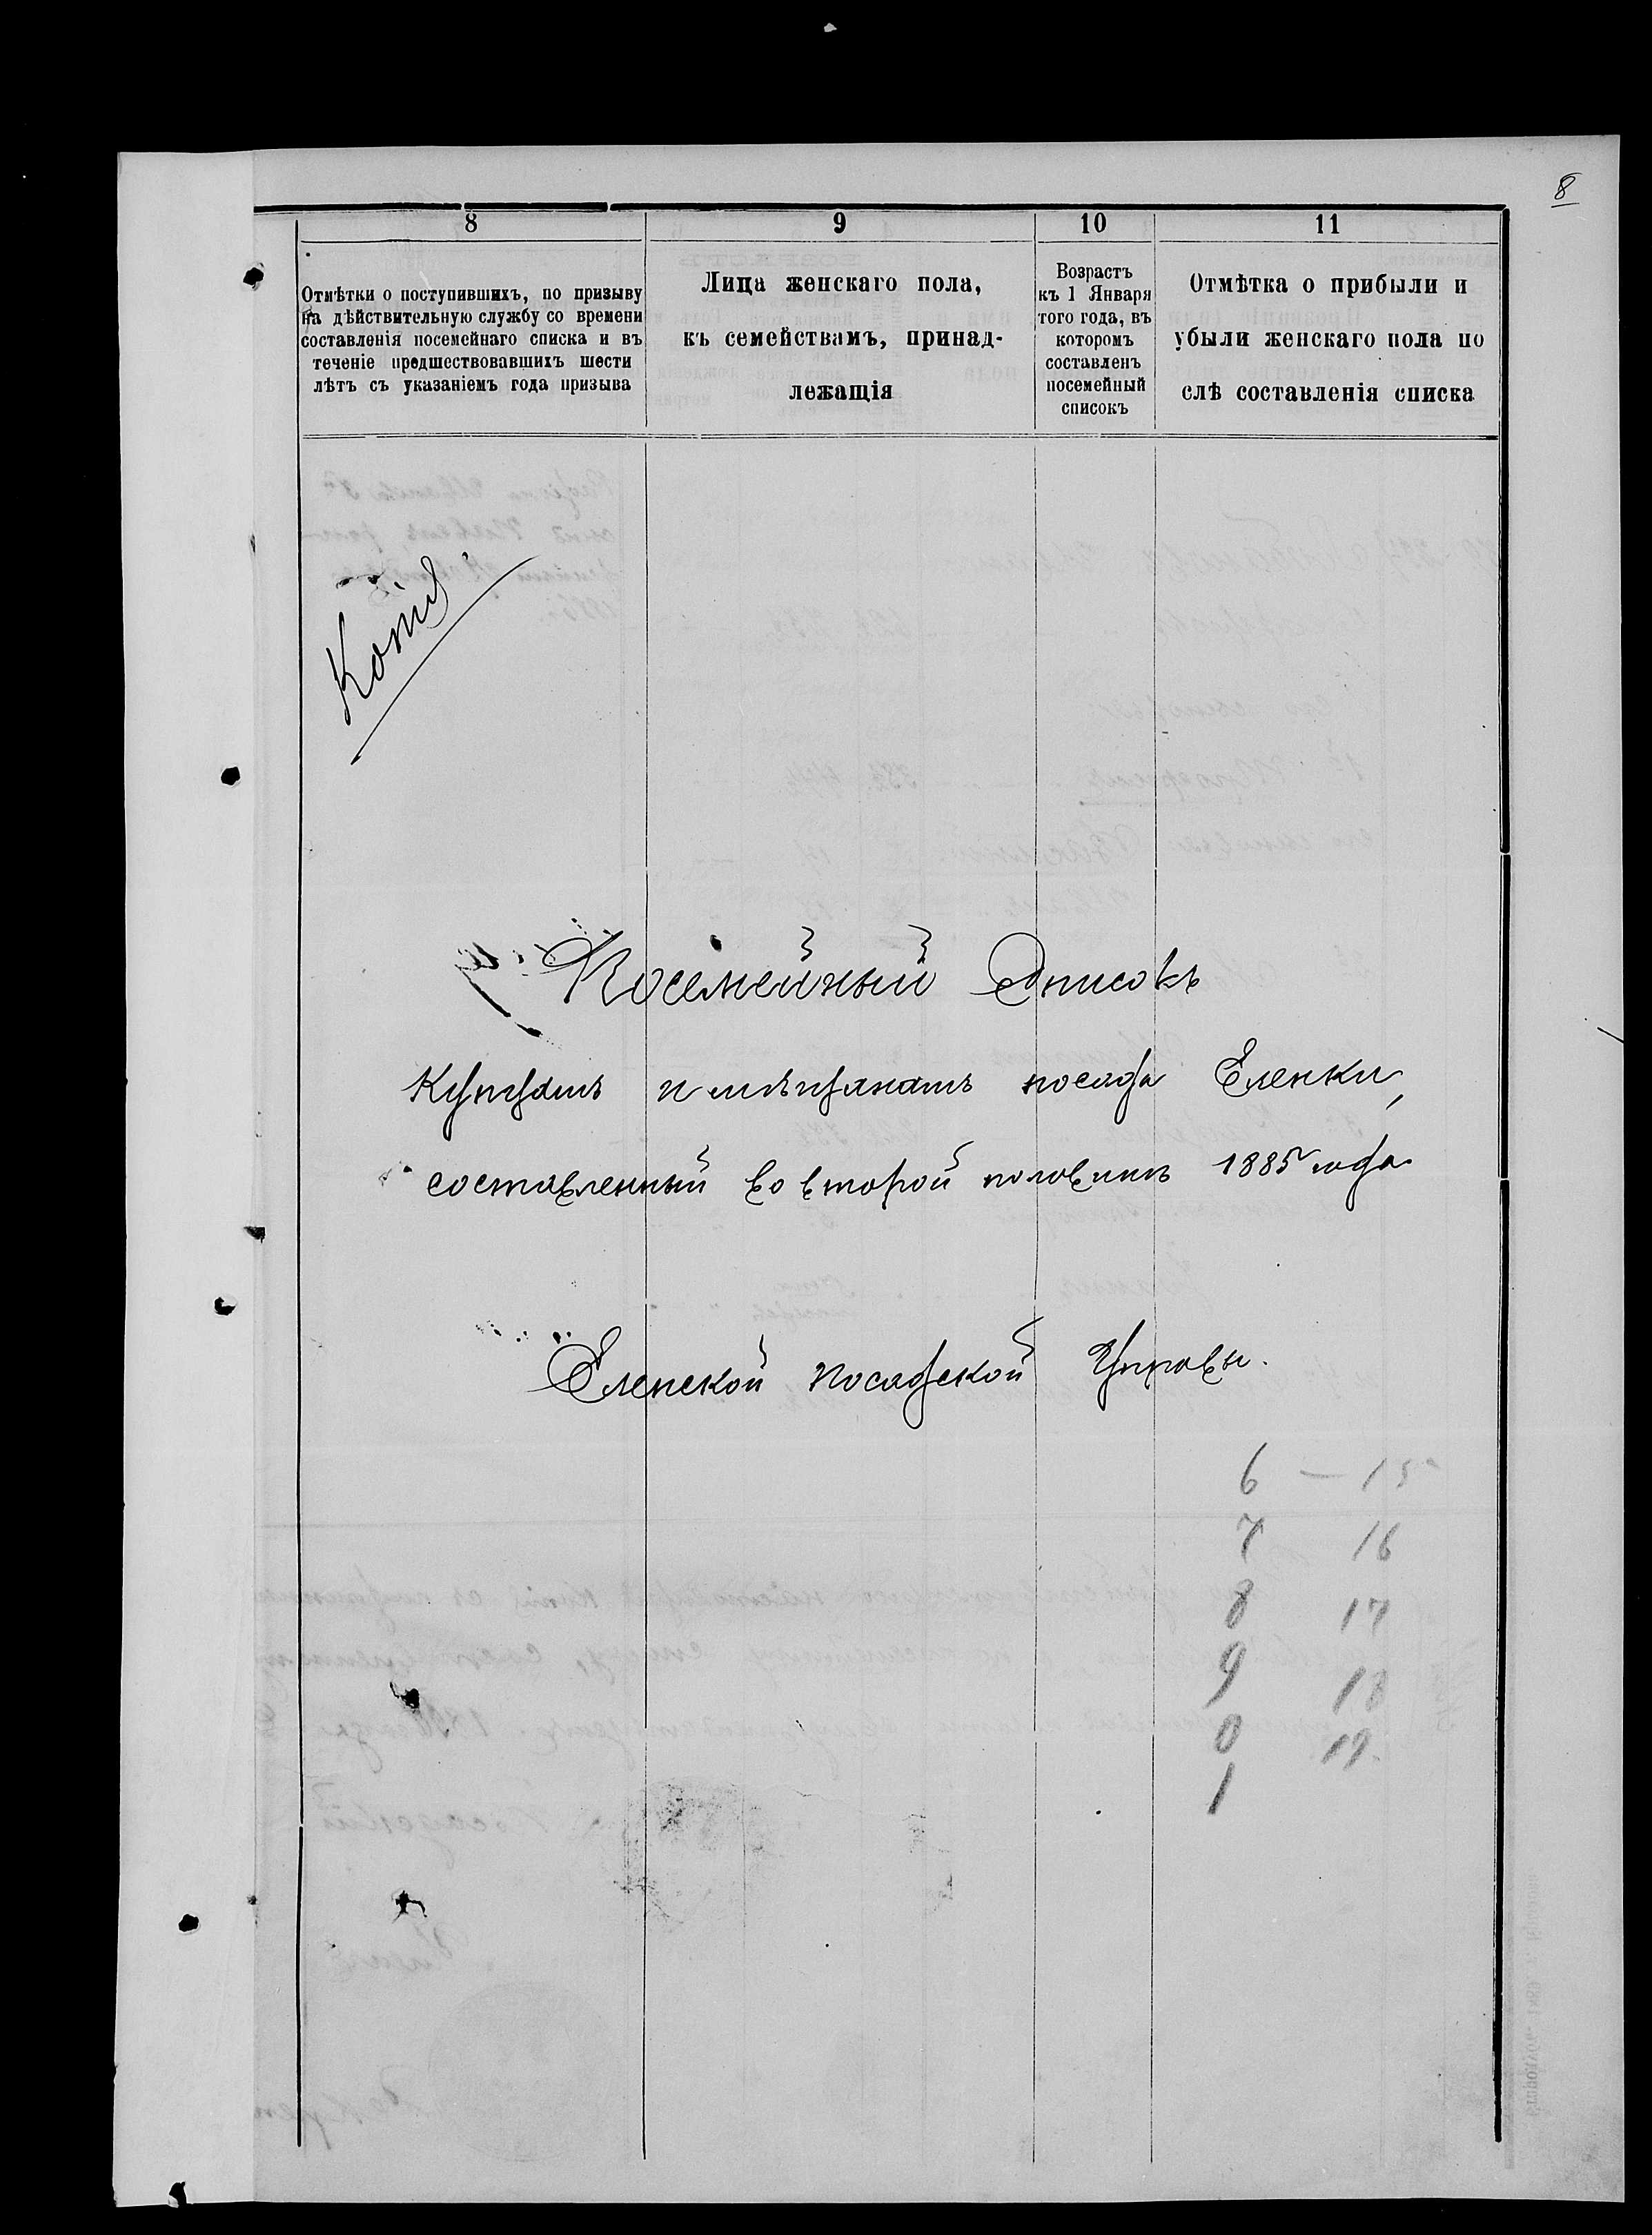 8
8
9
10
11
Отмѣтки о поступившихъ, по призыву
на дѣйствительную службу со времени
составленія посемейнаго списка и въ
теченіе предшествовавшихъ шести
лѣтъ съ указаніемъ года призыва
Лица женскаго пола,
къ семействамъ, принад-
лежащія
Возрастъ
къ 1 Января
того года, въ
которомъ
составленъ
посемейный
списокъ
Отмѣтка о прибыли и
убыли женскаго пола по
слѣ составленія списка
Копія
Посемейный Списокъ
Купцамъ и мѣщанамъ посада Еленки,
составленный во второй половинѣ 1885 года
Еленской Посадской Управы.
6 — 15
7 16
8 17
9 18
0 19.
1